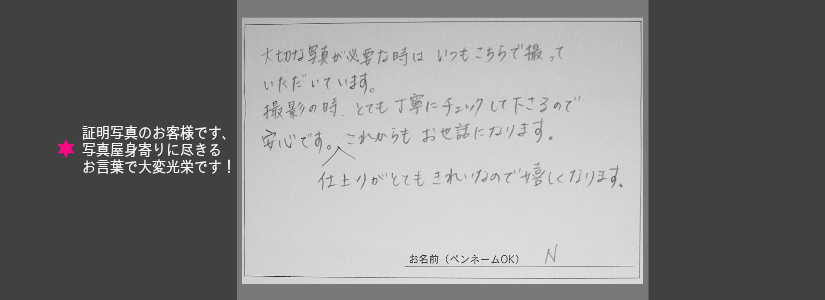 証明写真のお客様です、
写真屋身寄りに尽きる
お言葉で大変光栄です！
大切な写真が必要な時は いつもこちらで撮って
いただいています。
撮影の時、とても丁寧にチェックして下さるので
安心です。これからも お世話になります。
仕上りがとてもきれいなので嬉しくなります。
お名前（ペンネームOK） N